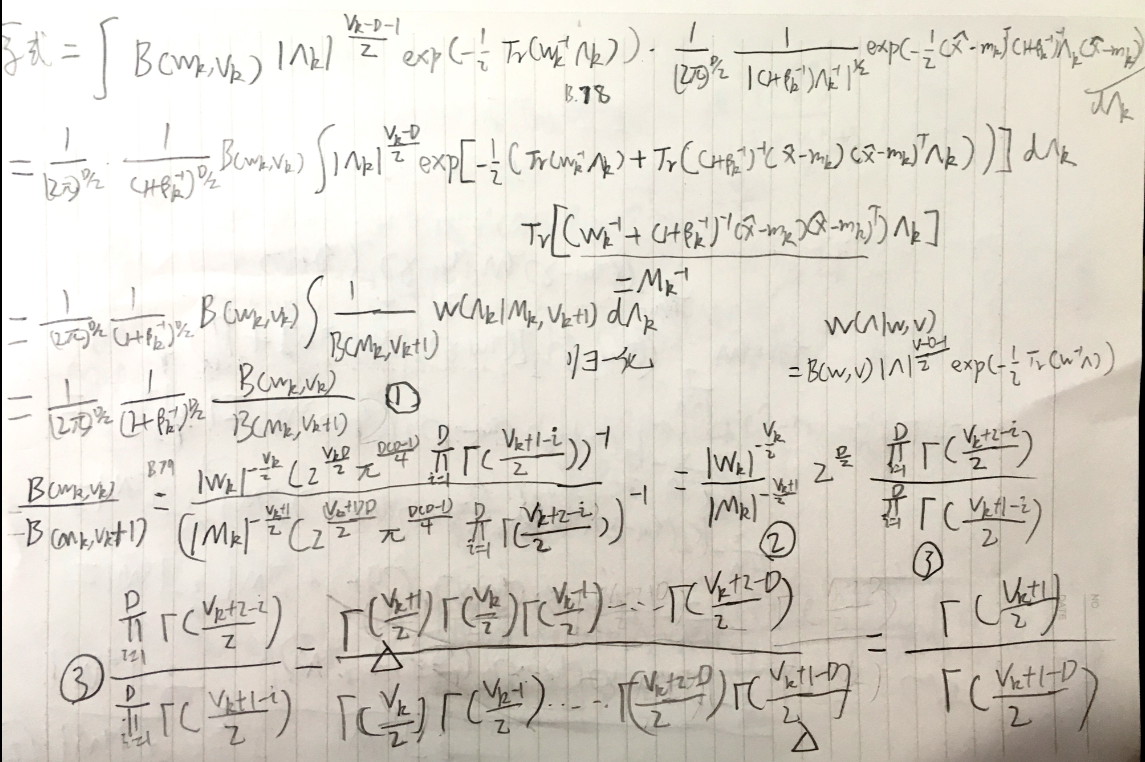 原式 = ∫ B(W_k,ν_k) |Λ_k|^{(ν_k-D-1)/2} exp(-1/2 Tr(W_k^{-1}Λ_k)) · 1/(2π)^{D/2} 1/|(1+β_k^{-1})Λ_k^{-1}|^{1/2} exp(-1/2 (x̂-m_k)^T (1+β_k^{-1})^{-1}Λ_k(x̂-m_k)) dΛ_k
B.78
= 1/(2π)^{D/2} · 1/(1+β_k^{-1})^{D/2} B(W_k,ν_k) ∫ |Λ_k|^{(ν_k-D)/2} exp[-1/2 (Tr(W_k^{-1}Λ_k) + Tr((1+β_k^{-1})^{-1}(x̂-m_k)(x̂-m_k)^TΛ_k))] dΛ_k
Tr[(W_k^{-1} + (1+β_k^{-1})^{-1}(x̂-m_k)(x̂-m_k)^T)Λ_k]
= M_k^{-1}
= 1/(2π)^{D/2} 1/(1+β_k^{-1})^{D/2} B(W_k,ν_k) ∫ 1/B(M_k,ν_k+1) W(Λ_k|M_k,ν_k+1) dΛ_k
归一化
W(Λ|W,ν)
= B(W,ν)|Λ|^{(ν-D-1)/2} exp(-1/2 Tr(W^{-1}Λ))
= 1/(2π)^{D/2} 1/(1+β_k^{-1})^{D/2} B(W_k,ν_k)/B(M_k,ν_k+1) ①
B(W_k,ν_k)/B(M_k,ν_k+1) = B79 |W_k|^{-ν_k/2} (2^{ν_kD/2} π^{D(D-1)/4} ∏_{i=1}^{D} Γ((ν_k+1-i)/2))^{-1} / (|M_k|^{-(ν_k+1)/2} (2^{(ν_k+1)D/2} π^{D(D-1)/4} ∏_{i=1}^{D} Γ((ν_k+2-i)/2))^{-1} = |W_k|^{-ν_k/2}/|M_k|^{-(ν_k+1)/2} 2^{D/2} ∏_{i=1}^{D} Γ((ν_k+2-i)/2)/∏_{i=1}^{D} Γ((ν_k+1-i)/2)
② ③
③ ∏_{i=1}^{D} Γ((ν_k+2-i)/2)/∏_{i=1}^{D} Γ((ν_k+1-i)/2) = Γ((ν_k+1)/2)Γ(ν_k/2)Γ((ν_k-1)/2)·····Γ((ν_k+2-D)/2) / Γ(ν_k/2)Γ((ν_k-1)/2)·····Γ((ν_k+2-D)/2)Γ((ν_k+1-D)/2) = Γ((ν_k+1)/2)/Γ((ν_k+1-D)/2)
△ △